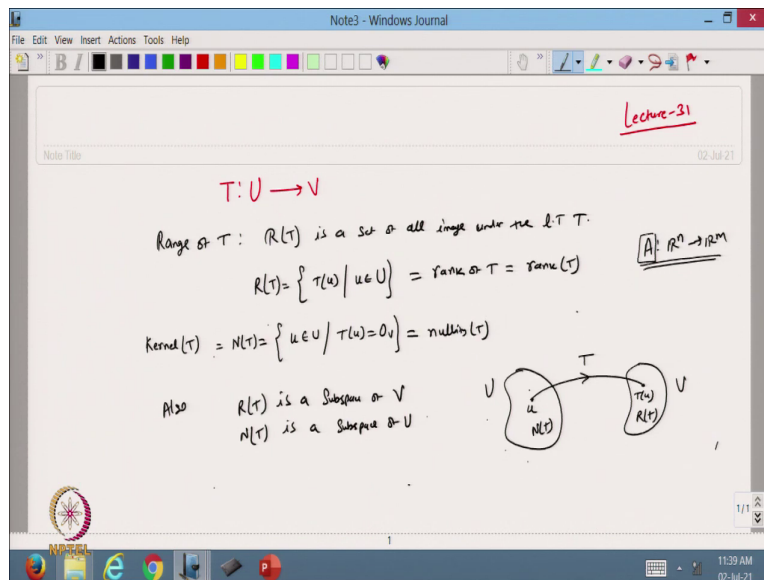 Note3 - Windows Journal
File Edit View Insert Actions Tools Help
B I
Lecture-31
Note Title
02-Jul-21
T: U → V
Range of T: R(T) is a set of all image under the L.T T.
A: Rⁿ → Rᵐ
R(T) = { T(u) | u ∈ U } = rank of T = rank(T)
Kernel(T) = N(T) = { u ∈ U / T(u) = 0v } = nullity(T)
Also R(T) is a Subspace of V
N(T) is a Subspace of U
T
U V
u T(u)
N(T) R(T)
1/1
NPTEL
1
11:39 AM
02-Jul-21